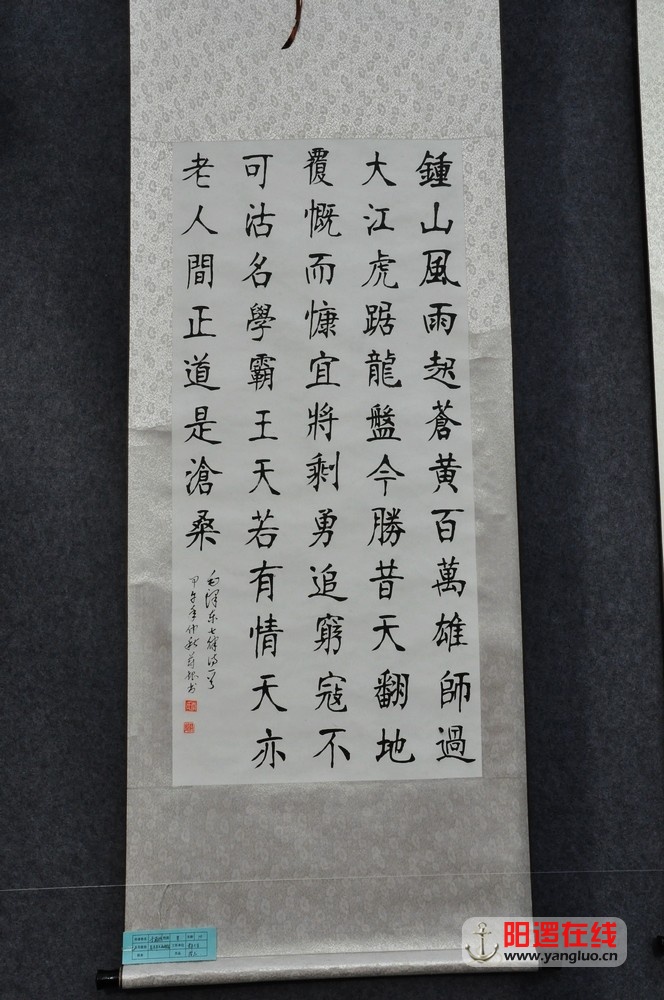 鍾山風雨起蒼黄百萬雄師過
大江虎踞龍盤今勝昔天翻地
覆慨而慷宜將剩勇追窮寇不
可沽名學霸王天若有情天亦
老人間正道是滄桑
毛泽东七律诗一首
甲午年仲秋
阳逻在线
www.yangluo.cn